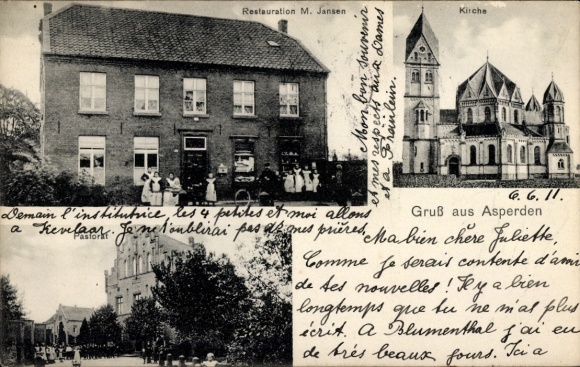 Restauration M. Jansen
Kirche
Mon bon souvenir
et mes respects aux Dames
et a Fraülein.
6.6.11.
Gruß aus Asperden
Demain l'institutrice, les 4 petites et moi allons
a Kevelaar. Je ne t'oublierai pas ds mes prières.
Pastorat
Ma bien chère Juliette,
Comme je serais contente d'avoir
de tes nouvelles! Il y a bien
longtemps que tu ne m'as plus
écrit. A Blumenthal j'ai eu
de très beaux jours. Ici a